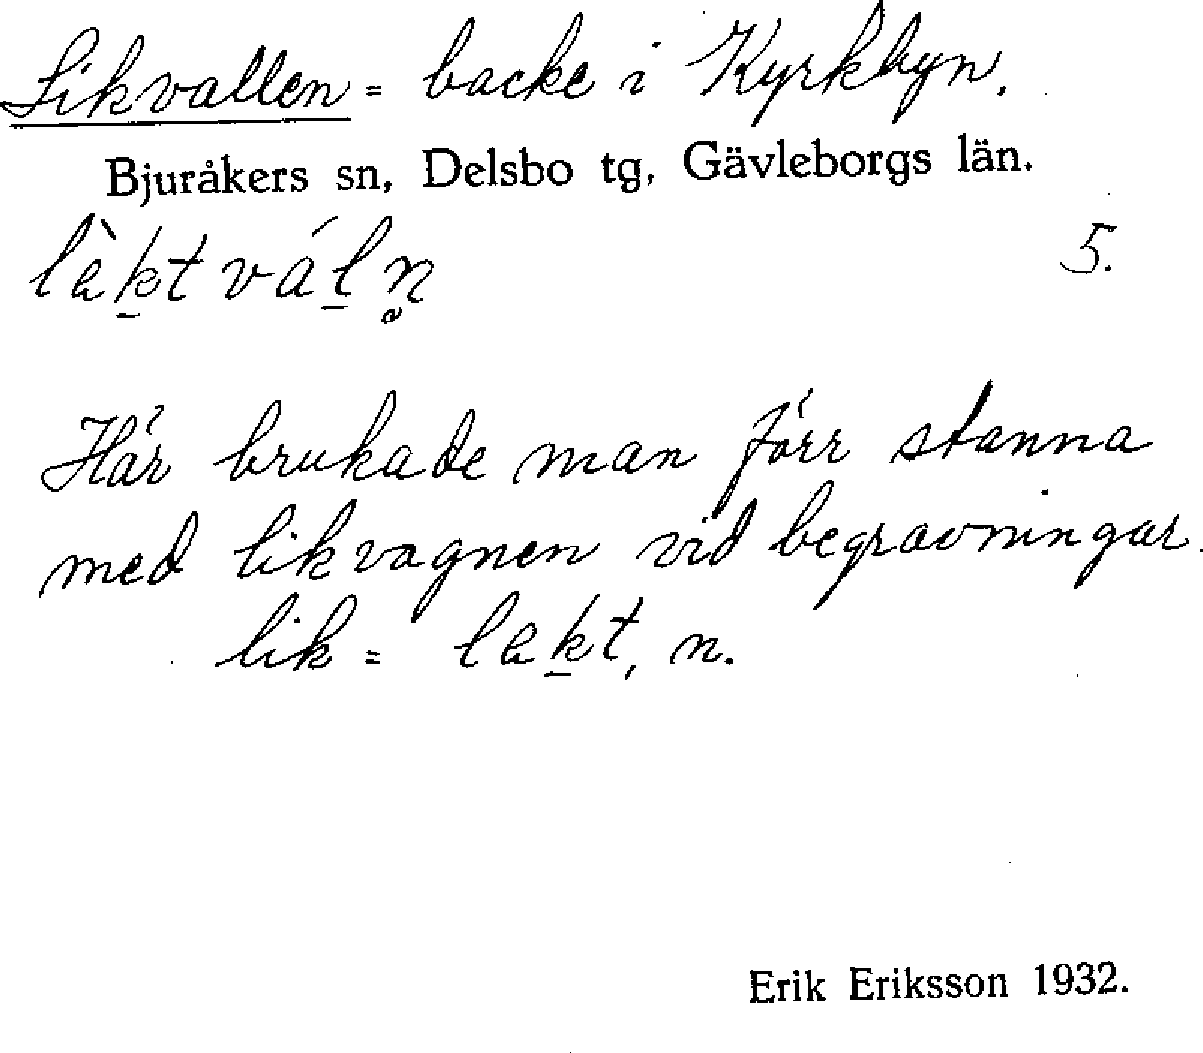 Likvallen = backe i Kyrkbyn.
Bjuråkers sn, Delsbo tg, Gävleborgs län.
làk̠t vál̠n̥ 5.
Här brukade man förr stanna
med likvagnen vid begravningar.
lik = lak̠t, n.
Erik Eriksson 1932.